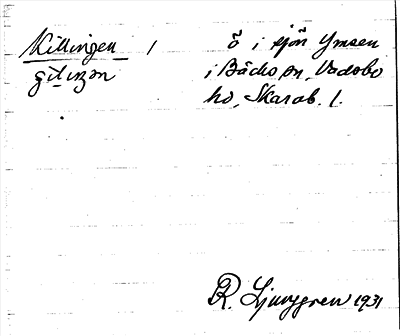 Killingen 1
ö i sjön Ymsen
i Bäcks sn, Vadsbo
hd, Skarab. l.
R. Ljunggren 1931